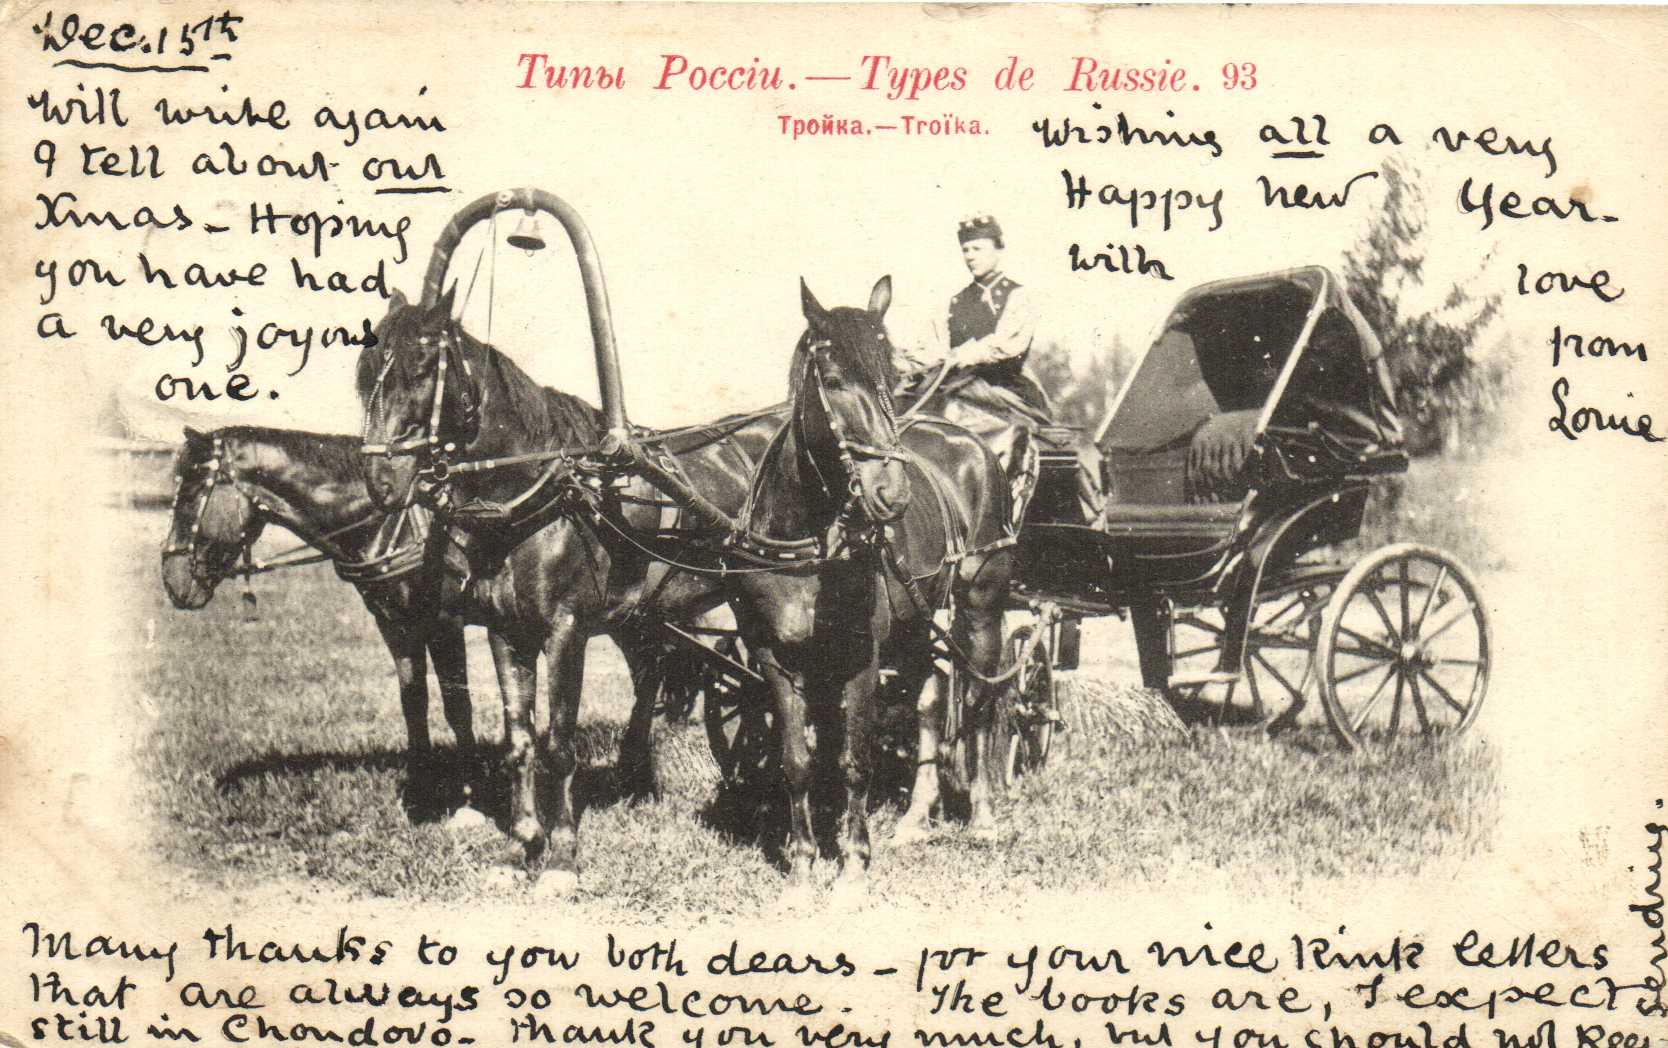 Dec. 15th
Will write again
& tell about our
Xmas - Hoping
you have had
a very joyous
one.
Типы Россіи. — Types de Russie. 93
Тройка. — Troïka.
Wishing all a very
Happy new Year -
with love
from
Louie
Many thanks to you both dears - for your nice kink letters
that are always so welcome. The books are, I expect
still in Chondovo - Thank you very much, but you should not keep
sending.